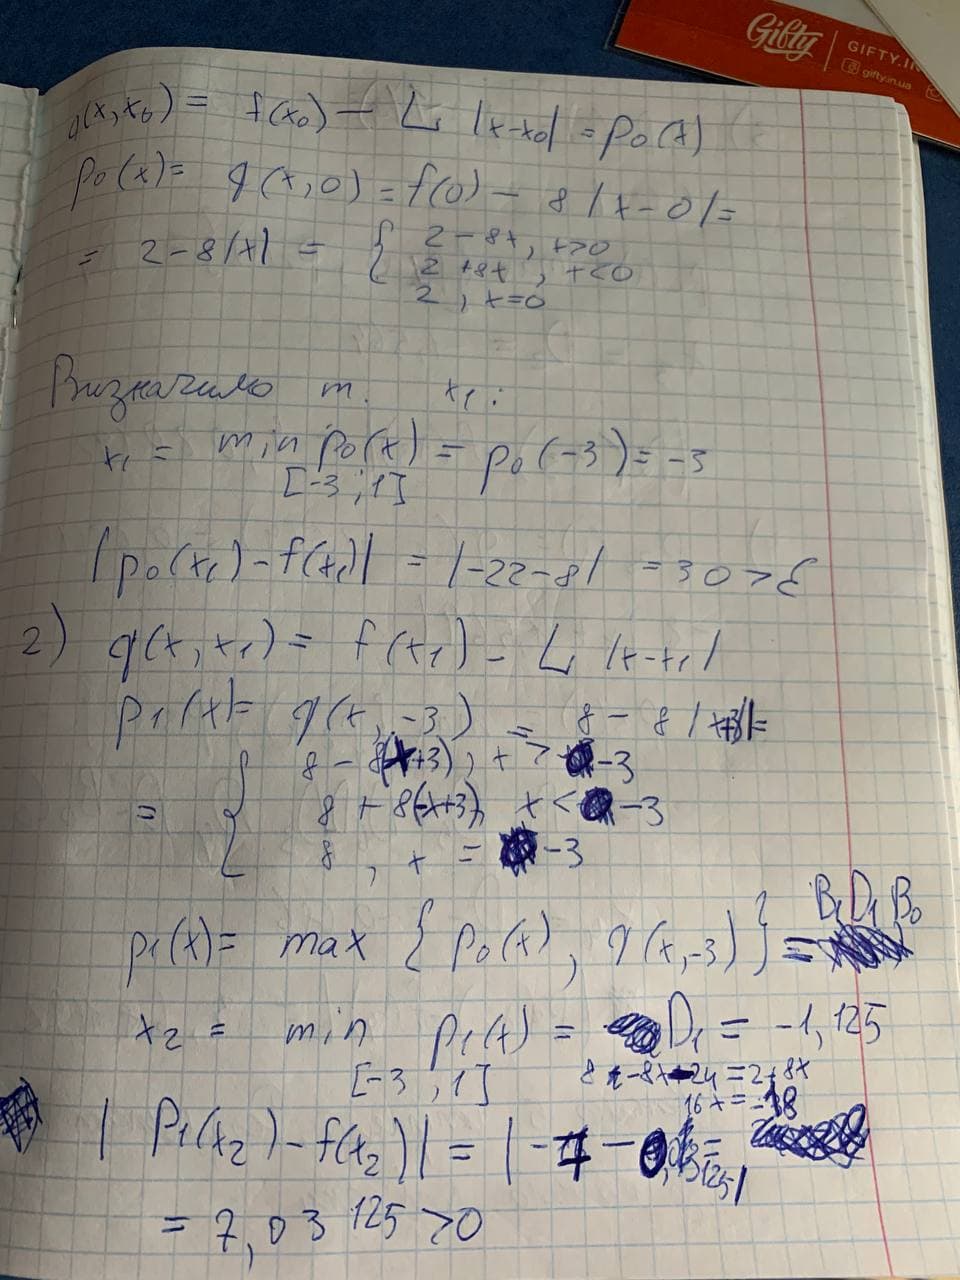 Gifty
GIFTY.IN
gifty.in.ua
q(x,x₀) = f(x₀) – L |x-x₀| = p₀(x)
p₀(x)= q(x,0) = f(0) – 8 |x-0| =
= 2-8|x| = { 2-8x, x>0
2+8x, x<0
2, x=0
Визначимо т. x₁:
x₁ = min p₀(x) = p₀(-3) = -3
[-3;1]
|p₀(x₁)-f(x₁)| = |-22-8| = 30 > ε
2) q(x,x₁) = f(x₁) – L |x-x₁|
p₁(x)= q(x,-3) = 8 – 8|x+3|=
= { 8 - 8(x+3), x > -3
8 + 8(-x+3), x < -3
8, x = -3
p₁(x)= max { p₀(x), q(x,-3) } = B₁D₁B₀
x₂ = min p₁(x) = D₁ = -1,125
[-3,1] 8-8x-24=2+8x
16x=-18
| P₁(x₂)-f(x₂)| = |-7 – 0,03125| =
= 7,03125 >0